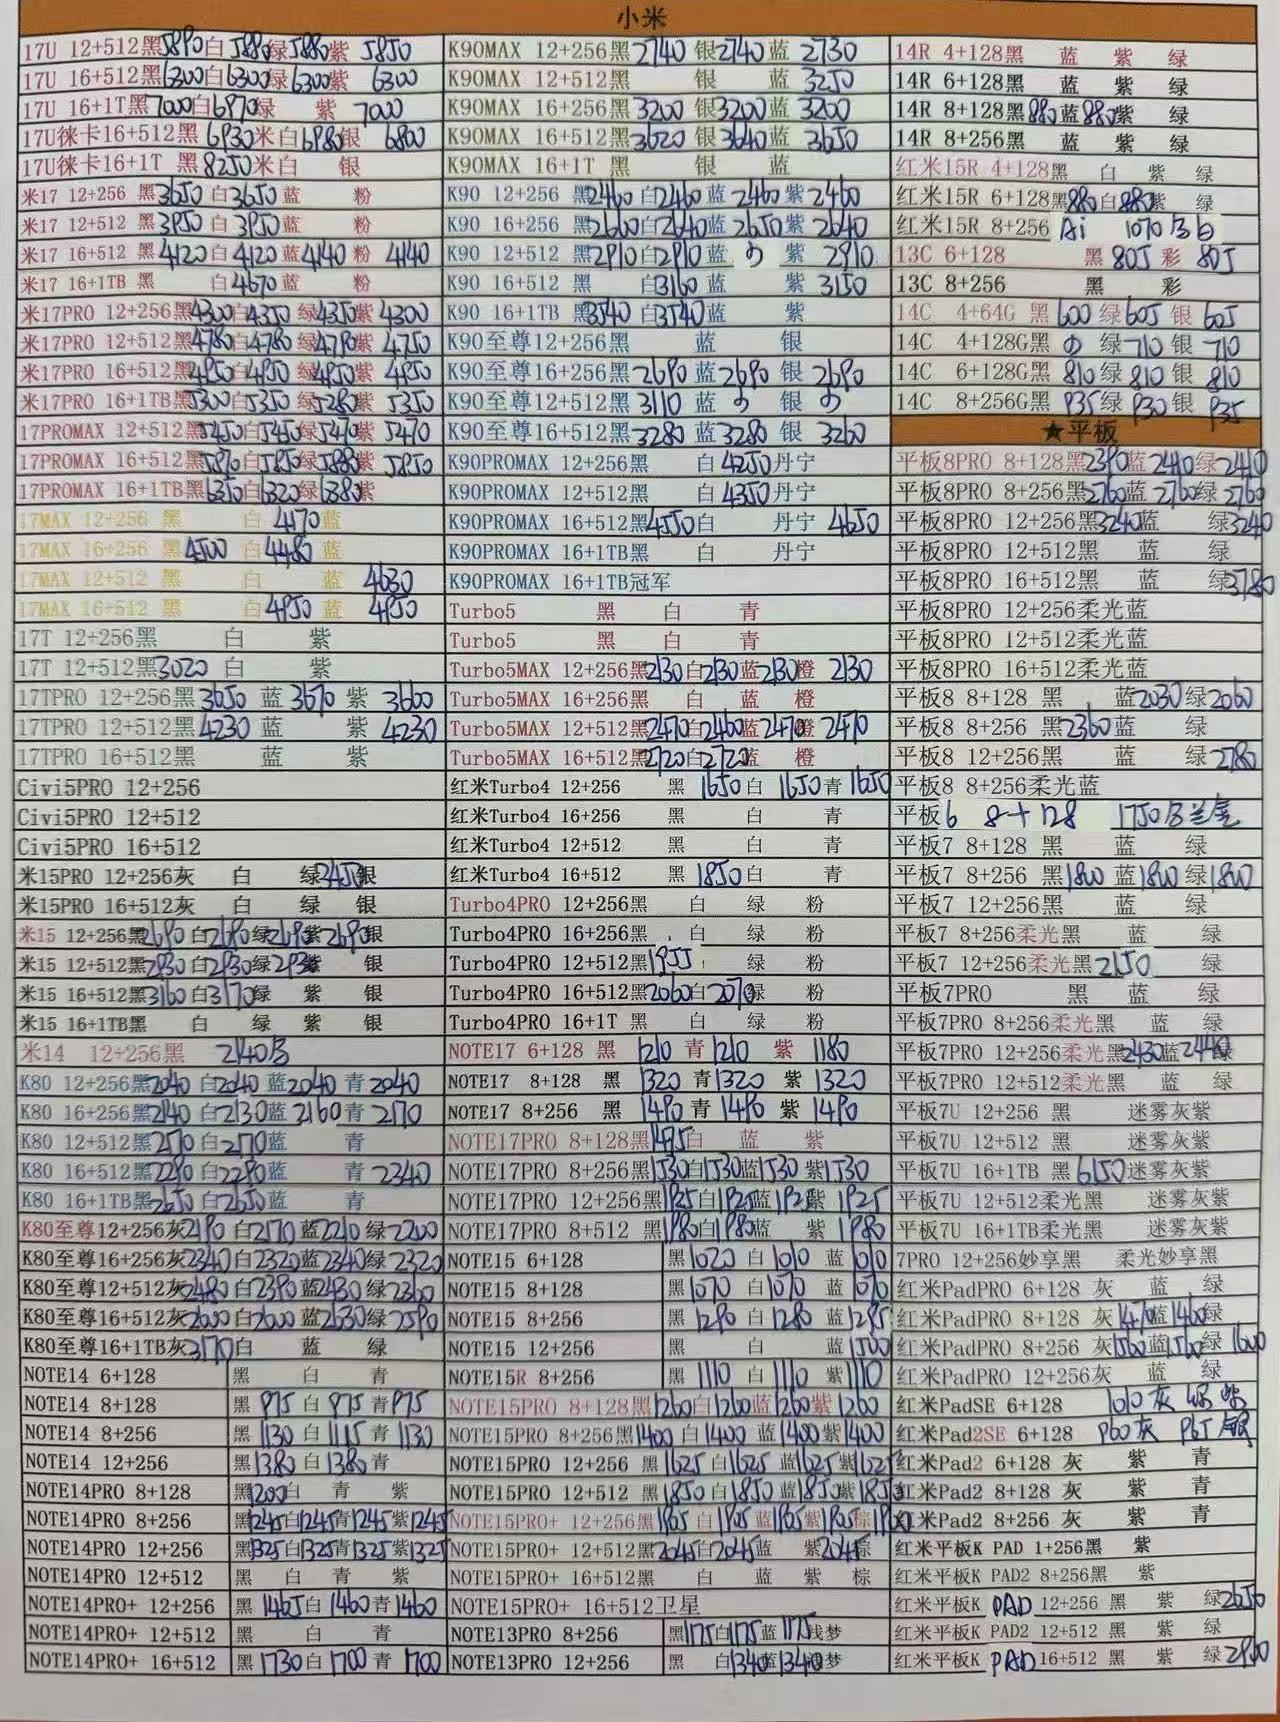 小米
17U 12+512黑5890白5880绿5880紫 5850
17U 16+512黑6300白6300绿6300紫 6300
17U 16+1T黑7000白6970绿 紫 7000
17U徕卡16+512黑 6930米白6980银 6800
17U徕卡16+1T 黑8250米白 银
米17 12+256 黑3650白3650蓝 粉
米17 12+512 黑3950白3950蓝 粉
米17 16+512 黑4120白4120蓝4140粉 4140
米17 16+1TB 黑 白4670蓝 粉
米17PRO 12+256黑4300白4350绿4350紫4300
米17PRO 12+512黑4780白4780绿4790紫4750
米17PRO 16+512黑4950白4950绿4950紫4950
米17PRO 16+1TB黑5300白5350绿5280紫5350
17PROMAX 12+512黑5450白5450绿5470紫5470
17PROMAX 16+512黑5890白5850绿5880紫5850
17PROMAX 16+1TB黑6310白6320绿6380紫
17MAX 12+256 黑 白 4470蓝
17MAX 16+256 黑4500 白4480蓝
17MAX 12+512 黑 白 蓝 4630
17MAX 16+512 黑 白4950蓝 4950
17T 12+256黑 白 紫
17T 12+512黑3020 白 紫
17TPRO 12+256黑3650 蓝 3670 紫 3600
17TPRO 12+512黑4230 蓝 紫 4230
17TPRO 16+512黑 蓝 紫
Civi5PRO 12+256
Civi5PRO 12+512
Civi5PRO 16+512
米15PRO 12+256灰 白 绿3450银
米15PRO 16+512灰 白 绿 银
米15 12+256黑2690白2690绿2690紫2690银
米15 12+512黑2930白2930绿2930紫 银
米15 16+512黑3160白3170绿 紫 银
米15 16+1TB黑 白 绿 紫 银
米14 12+256黑 2140
K80 12+256黑2040 白2040 蓝2040 青2040
K80 16+256黑2140 白2130蓝2160青2170
K80 12+512黑2170 白2170蓝 青
K80 16+512黑2290 白2290蓝 青2340
K80 16+1TB黑2650 白2650蓝 青
K80至尊12+256灰2190 白2170 蓝2210 绿2200
K80至尊16+256灰2340白2320蓝2340绿2320
K80至尊12+512灰2480白2390蓝2430绿2360
K80至尊16+512灰2600白2600蓝2630绿2590
K80至尊16+1TB灰3170白 蓝 绿
NOTE14 6+128 黑 白 青
NOTE14 8+128 黑 975 白 975 青975
NOTE14 8+256 黑 1130 白 1115 青 1130
NOTE14 12+256 黑1380 白 1380青
NOTE14PRO 8+128 黑1200白 青 紫
NOTE14PRO 8+256 黑1245白1245青1245紫1245
NOTE14PRO 12+256 黑1325白1325青1325紫1325
NOTE14PRO 12+512 黑 白 青 紫
NOTE14PRO+ 12+256 黑 1465白 1460青1460
NOTE14PRO+ 12+512 黑 白 青
NOTE14PRO+ 16+512 黑1730白1700青 1700
K90MAX 12+256黑2740 银2740蓝 2730
K90MAX 12+512黑 银 蓝 3250
K90MAX 16+256黑3200 银3200蓝 3200
K90MAX 16+512黑3620 银3640蓝 3650
K90MAX 16+1T 黑 银 蓝
K90 12+256 黑2460 白2460蓝 2460紫2460
K90 16+256 黑2660白2640蓝 2650紫2640
K90 12+512 黑2910白2910蓝 紫 2910
K90 16+512 黑 白3160蓝 紫3150
K90 16+1TB 黑3540 白3540蓝 紫
K90至尊12+256黑 蓝 银
K90至尊16+256黑2690 蓝2690 银2690
K90至尊12+512黑 3110 蓝 银
K90至尊16+512黑 3280 蓝3280 银 3260
K90PROMAX 12+256黑 白4250丹宁
K90PROMAX 12+512黑 白4350丹宁
K90PROMAX 16+512黑4550白 丹宁 4650
K90PROMAX 16+1TB黑 白 丹宁
K90PROMAX 16+1TB冠军
Turbo5 黑 白 青
Turbo5 黑 白 青
Turbo5MAX 12+256黑2130白2130蓝2130橙 2130
Turbo5MAX 16+256黑 白 蓝 橙
Turbo5MAX 12+512黑2470白2460蓝2470橙 2470
Turbo5MAX 16+512黑2720白2720蓝 橙
红米Turbo4 12+256 黑 1650白 1650青1650
红米Turbo4 16+256 黑 白 青
红米Turbo4 12+512 黑 白 青
红米Turbo4 16+512 黑 1850白 青
Turbo4PRO 12+256黑 白 绿 粉
Turbo4PRO 16+256黑 白 绿 粉
Turbo4PRO 12+512黑1955 绿 粉
Turbo4PRO 16+512黑2060白 2070绿 粉
Turbo4PRO 16+1T 黑 白 绿 粉
NOTE17 6+128 黑 1210 青1210 紫 1180
NOTE17 8+128 黑 1320 青1320 紫 1320
NOTE17 8+256 黑 1490 青 1490 紫 1490
NOTE17PRO 8+128黑1495白 蓝 紫
NOTE17PRO 8+256黑1530白1530蓝1530 紫1530
NOTE17PRO 12+256黑1925白1925蓝1925紫 1925
NOTE17PRO 8+512 黑1980白1980蓝 紫 1980
NOTE15 6+128 黑1020 白 1010 蓝 1010
NOTE15 8+128 黑1070 白 1070 蓝 1070
NOTE15 8+256 黑1290 白 1280 蓝1295
NOTE15 12+256 黑 白 蓝1500
NOTE15R 8+256 黑 1110 白 1110 紫1110
NOTE15PRO 8+128黑1260白1260蓝1260紫1260
NOTE15PRO 8+256黑1400 白1400 蓝1400紫1400
NOTE15PRO 12+256 黑1625 白1625 蓝1625紫1625
NOTE15PRO 12+512 黑1850白1850 蓝1850紫1850
NOTE15PRO+ 12+256黑1905 白 1905 蓝1905紫1905棕
NOTE15PRO+ 12+512黑2045白2045蓝 紫2045棕
NOTE15PRO+ 16+512黑 白 蓝 紫 棕
NOTE15PRO+ 16+512卫星
NOTE13PRO 8+256 黑1175白1175蓝1175浅梦
NOTE13PRO 12+256 黑 白1340蓝1340浅梦
14R 4+128黑 蓝 紫 绿
14R 6+128黑 蓝 紫 绿
14R 8+128黑880蓝880紫 绿
14R 8+256黑 蓝 紫 绿
红米15R 4+128黑 白 紫 绿
红米15R 6+128黑880白880紫 绿
红米15R 8+256 Ai 1070 白
13C 6+128 黑 805 彩 805
13C 8+256 黑 彩
14C 4+64G 黑 600 绿605 银 605
14C 4+128G黑 绿710 银 710
14C 6+128G黑 810 绿 810 银 810
14C 8+256G黑 935绿 930银 935
★平板
平板8PRO 8+128黑2390蓝 2410绿2410
平板8PRO 8+256黑2760蓝 2760绿2760
平板8PRO 12+256黑3240蓝 绿3240
平板8PRO 12+512黑 蓝 绿
平板8PRO 16+512黑 蓝 绿3780
平板8PRO 12+256柔光蓝
平板8PRO 12+512柔光蓝
平板8PRO 16+512柔光蓝
平板8 8+128 黑 蓝2030绿2060
平板8 8+256 黑2360蓝 绿
平板8 12+256黑 蓝 绿2780
平板8 8+256柔光蓝
平板6 8+128 1750
平板7 8+128 黑 蓝 绿
平板7 8+256 黑1800 蓝1800 绿1800
平板7 12+256黑 蓝 绿
平板7 8+256柔光黑 蓝 绿
平板7 12+256柔光黑2150 绿
平板7PRO 黑 蓝 绿
平板7PRO 8+256柔光黑 蓝 绿
平板7PRO 12+256柔光黑2430蓝2440绿
平板7PRO 12+512柔光黑 蓝 绿
平板7U 12+256 黑 迷雾灰紫
平板7U 12+512 黑 迷雾灰紫
平板7U 16+1TB 黑 6150迷雾灰紫
平板7U 12+512柔光黑 迷雾灰紫
平板7U 16+1TB柔光黑 迷雾灰紫
7PRO 12+256妙享黑 柔光妙享黑
红米PadPRO 6+128 灰 蓝 绿
红米PadPRO 8+128 灰1470蓝1460绿
红米PadPRO 8+256 灰1560蓝1560绿 1600
红米PadPRO 12+256灰 蓝 绿
红米PadSE 6+128 1010 灰 绿 紫
红米Pad2SE 6+128 960灰 965 银
红米Pad2 6+128 灰 紫 青
红米Pad2 8+128 灰 紫 青
红米Pad2 8+256 灰 紫 青
红米平板K PAD 1+256黑 紫
红米平板K PAD2 8+256黑 紫
红米平板K PAD 12+256 黑 紫 绿2650
红米平板K PAD2 12+512 黑 紫 绿
红米平板K PAD 16+512 黑 紫 绿2900